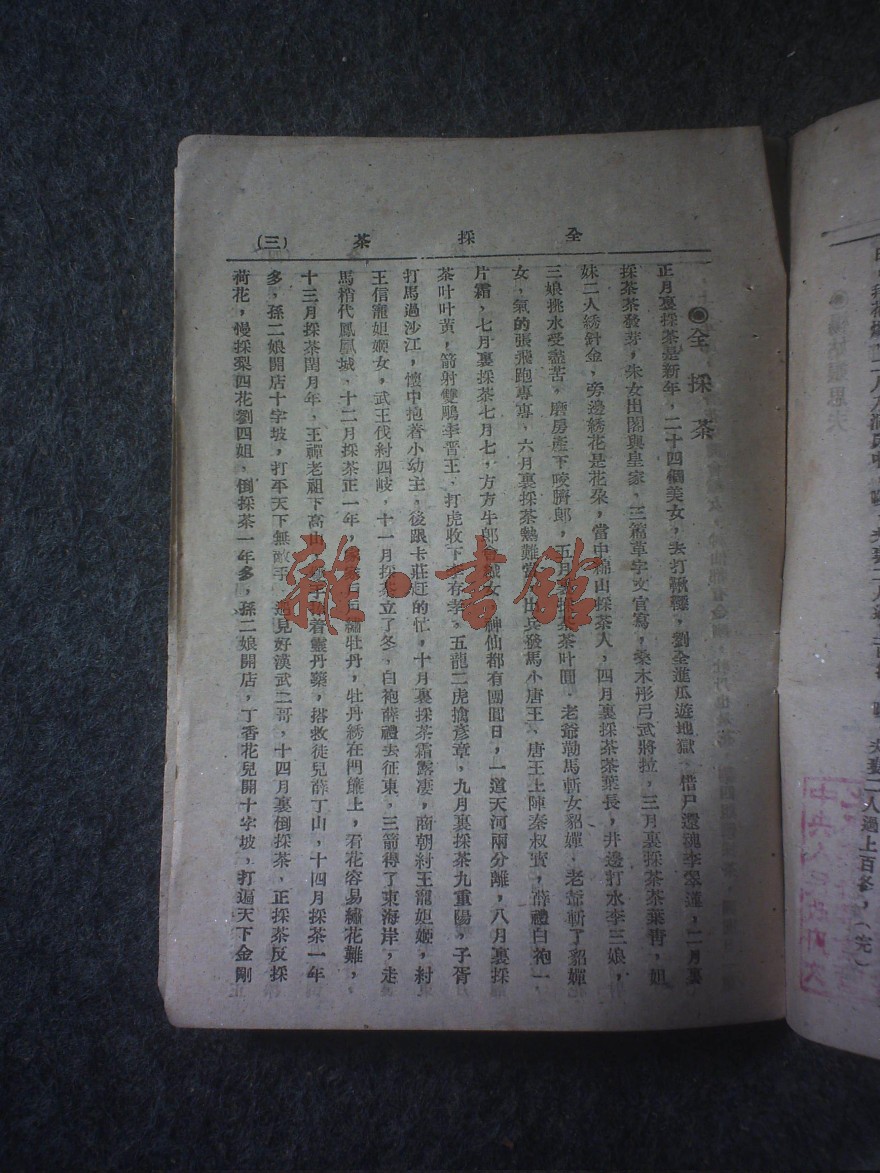 全採茶 (三)
◉全採茶
正月裏採茶是新年，二十四個美女，去打鞦韆，劉全進瓜遊地獄、借尸還魂李翠蓮，二月裏
採茶茶發芽，朱女出閣與皇家，三篇草字文官寫，桑木彤弓武將拉，三月裏採茶茶葉青，姐
妹二人綉針金，旁邊綉花是花朶，當中綿山採茶人，四月裏採茶茶葉長，井邊打水李三娘，
三娘挑水受盡苦，磨房產下咬臍郎，五月裏採茶茶叶圓．老爺勒馬斬女貂嬋．老爺斬了貂嬋
女，氣的張飛跑專專，六月裏採茶熱難當 出兵發馬小唐王、唐王上陣秦叔寶，薛禮白袍一
片霜，七月裏採茶七月七，方方牛郎 織女，神仙都有團圓日，一道天河兩分離，八月裏採
茶叶叶黄，箭射雙鵰李晋王．打虎收下李存孝，五龍二虎擒彦章，九月裏採茶九重陽，子胥
打馬過沙江，懷中抱着小幼主，後跟卡莊赶的忙，十月裏採茶霜露凄，商朝紂王寵妲姬，紂
王信寵妲姬女，武王伐紂四岐，十一月採茶立了冬，白袍薛禮去征東，三箭得了東海岸，走
馬稍代鳳凰城、十二月採茶正一年， 繡牡丹，牡丹綉在門簾上，看花容易繡花難，
十三月採茶閏月年，王禪老祖下高山， 着靈丹藥，搭救徒兒薛丁山，十四月採茶一年
多，孫二娘開店十字坡，打平天下無敵手，遇見好漢武二哥，十四月裏倒採茶，正採茶反採
荷花，慢採梨四花劉四姐，倒採茶一年多，孫二娘開店，丁香花兒開十字坡，打遍天下金剛
雜·書館
夫妻二人過上百冬，(完)